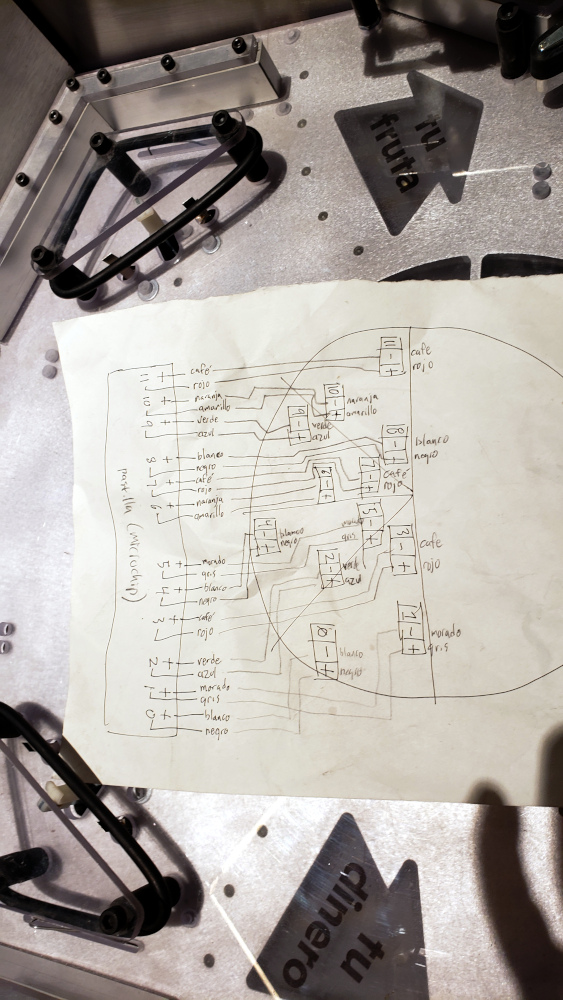 tu
fruta
11 + - café
rojo
10 + - naranja
amarillo
9 + - verde
azul
8 + - blanco
negro
7 + - café
rojo
6 + - naranja
amarillo
5 + - morado
gris
4 + - blanco
negro
3 + - café
rojo
2 + - verde
azul
1 + - morado
gris
0 + - blanco
negro
pastilla (microchip)
11 - + café
rojo
10 - + naranja
amarillo
9 - + verde
azul
8 - + blanco
negro
7 - + café
rojo
6 - +
5 - + morado
gris
4 - + blanco
negro
3 - + café
rojo
2 - + verde
azul
1 - + morado
gris
0 - + blanco
negro
tu
dinero